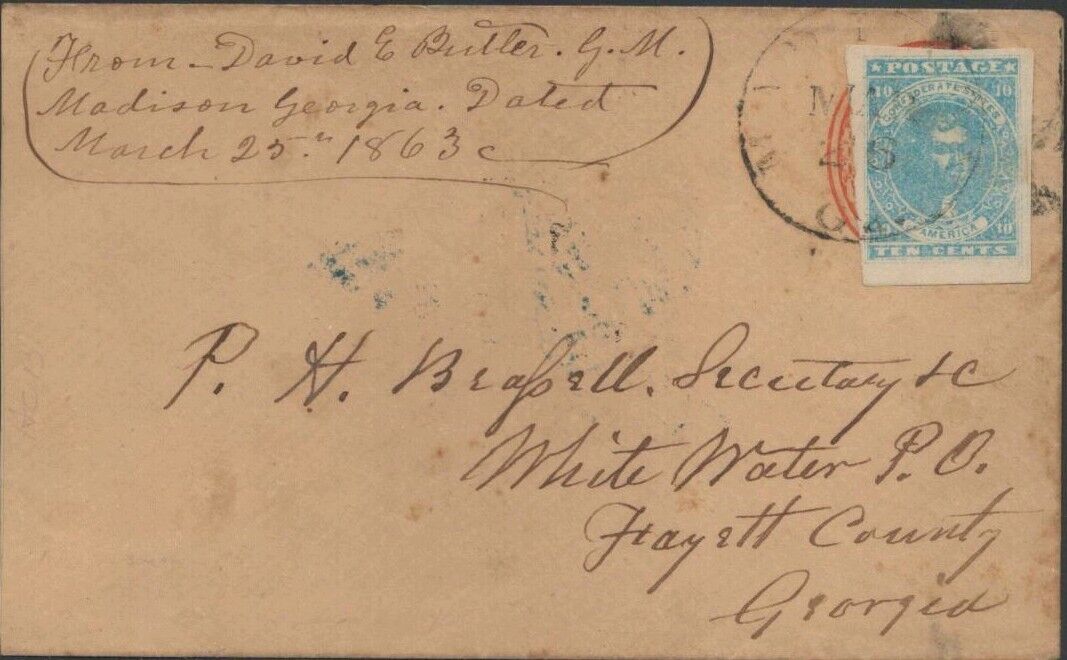 From - David E Butler. G. M.
Madison Georgia. Dated
March 25.th 1863
POSTAGE
10 10
CONFEDERATE STATES
AMERICA
10
TEN CENTS
P. H. Braſsell. Secretary &c
White Water P. O.
Fayett County
Georgia